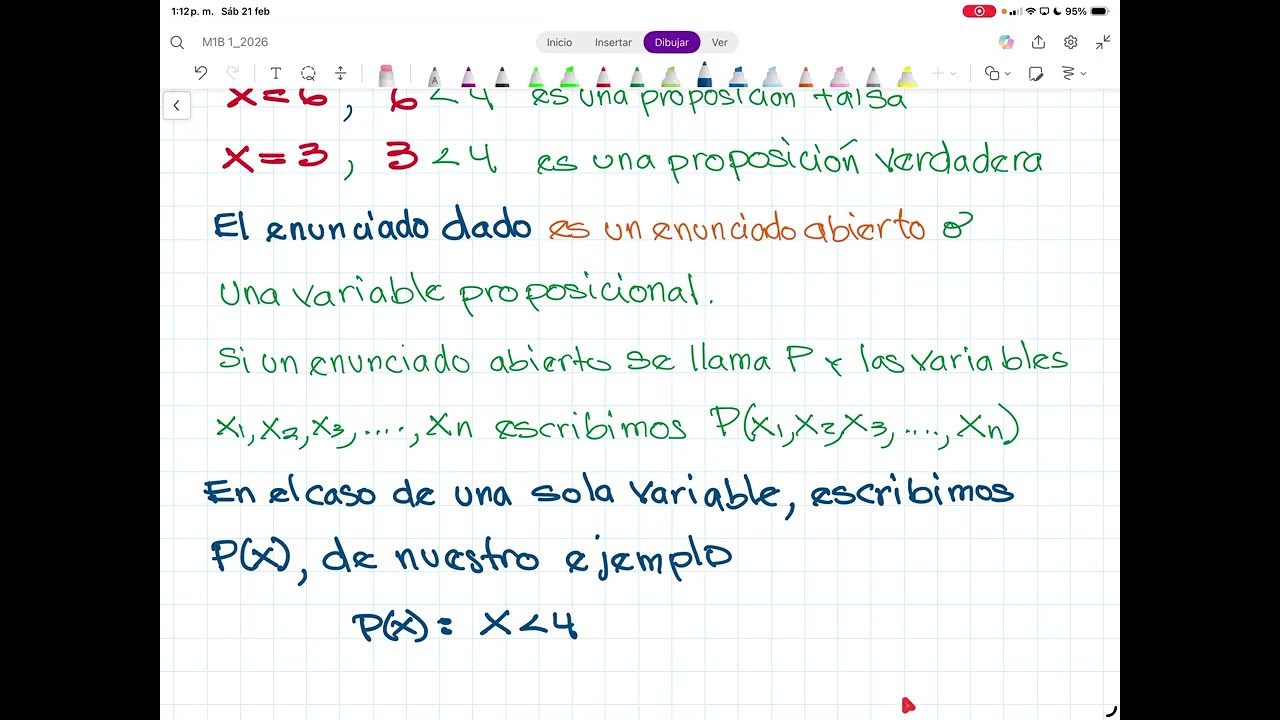 1:12 p. m. Sáb 21 feb 95%
M1B 1_2026 Inicio Insertar Dibujar Ver
x=6, 6<4 es una proposición falsa
x=3, 3<4 es una proposición verdadera
El enunciado dado es un enunciado abierto o
una variable proposicional.
Si un enunciado abierto se llama P y las variables
x1, x2, x3, ...., xn escribimos P(x1, x2, x3, ...., xn)
En el caso de una sola variable, escribimos
P(x), de nuestro ejemplo
P(x): x<4